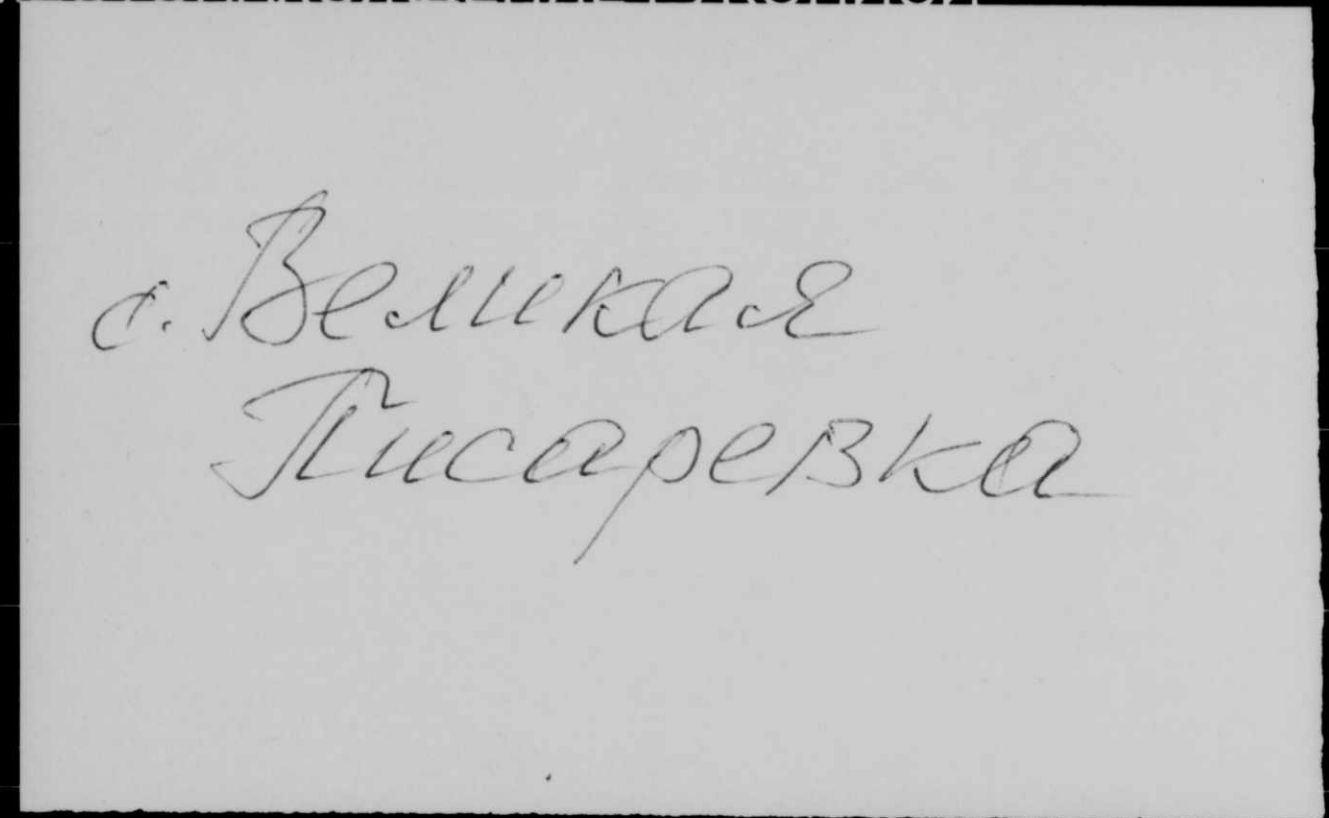 с. Великая
Писаревка